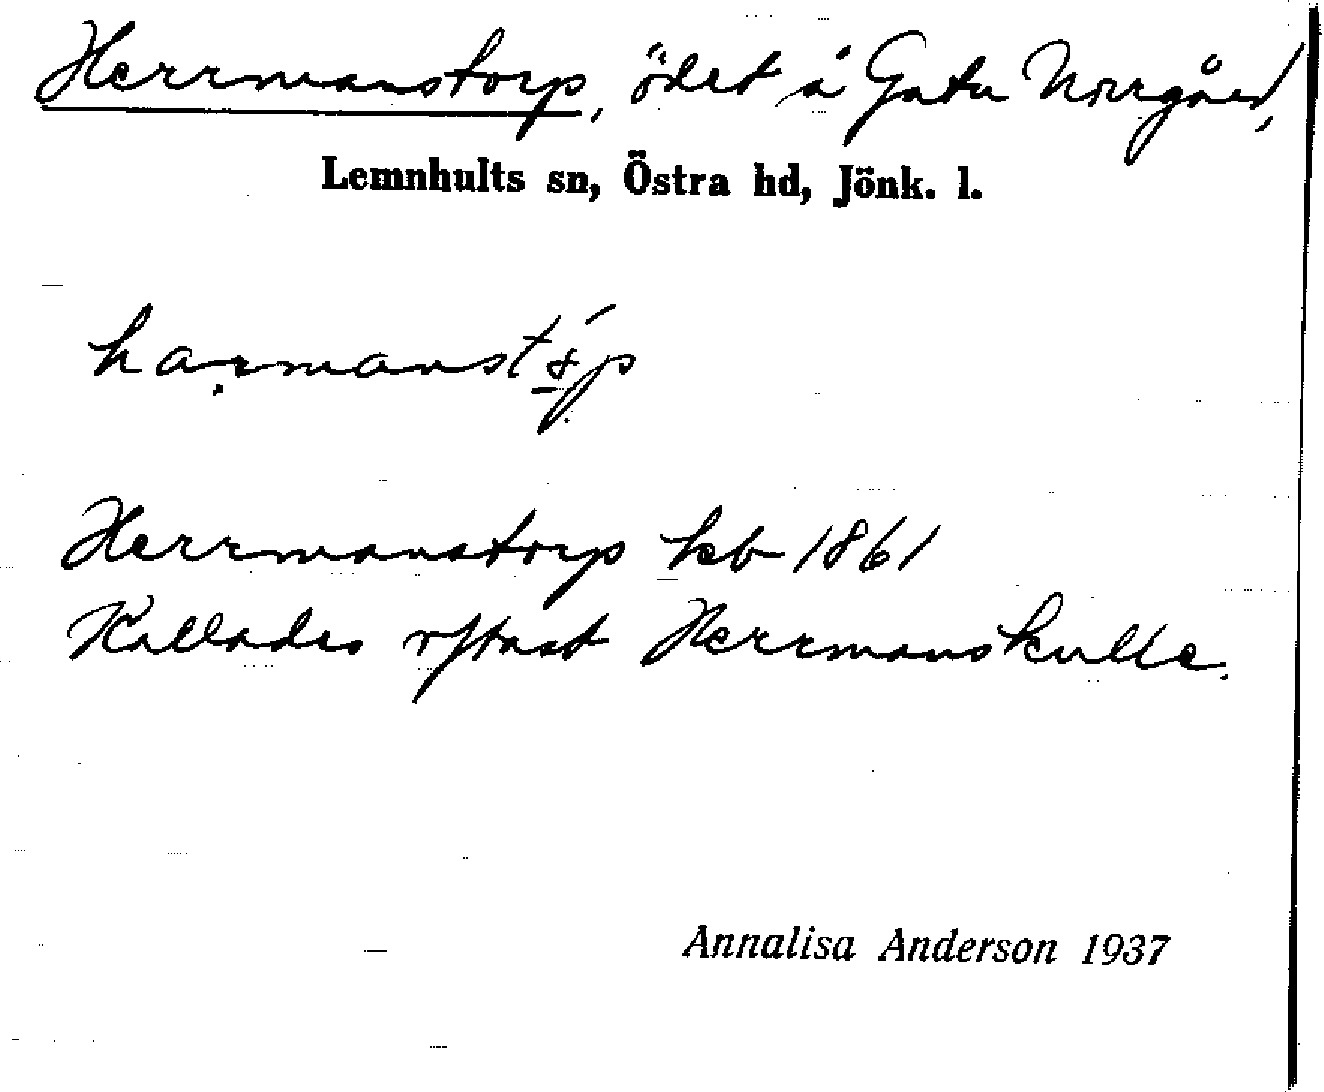 Herrmanstorp, ödet å Gatu Norrgård,
Lemnhults sn, Östra hd, Jönk. l.
Herrmanstorp kb 1861
Kallades oftast Herrmanskulle.
Annalisa Anderson 1937